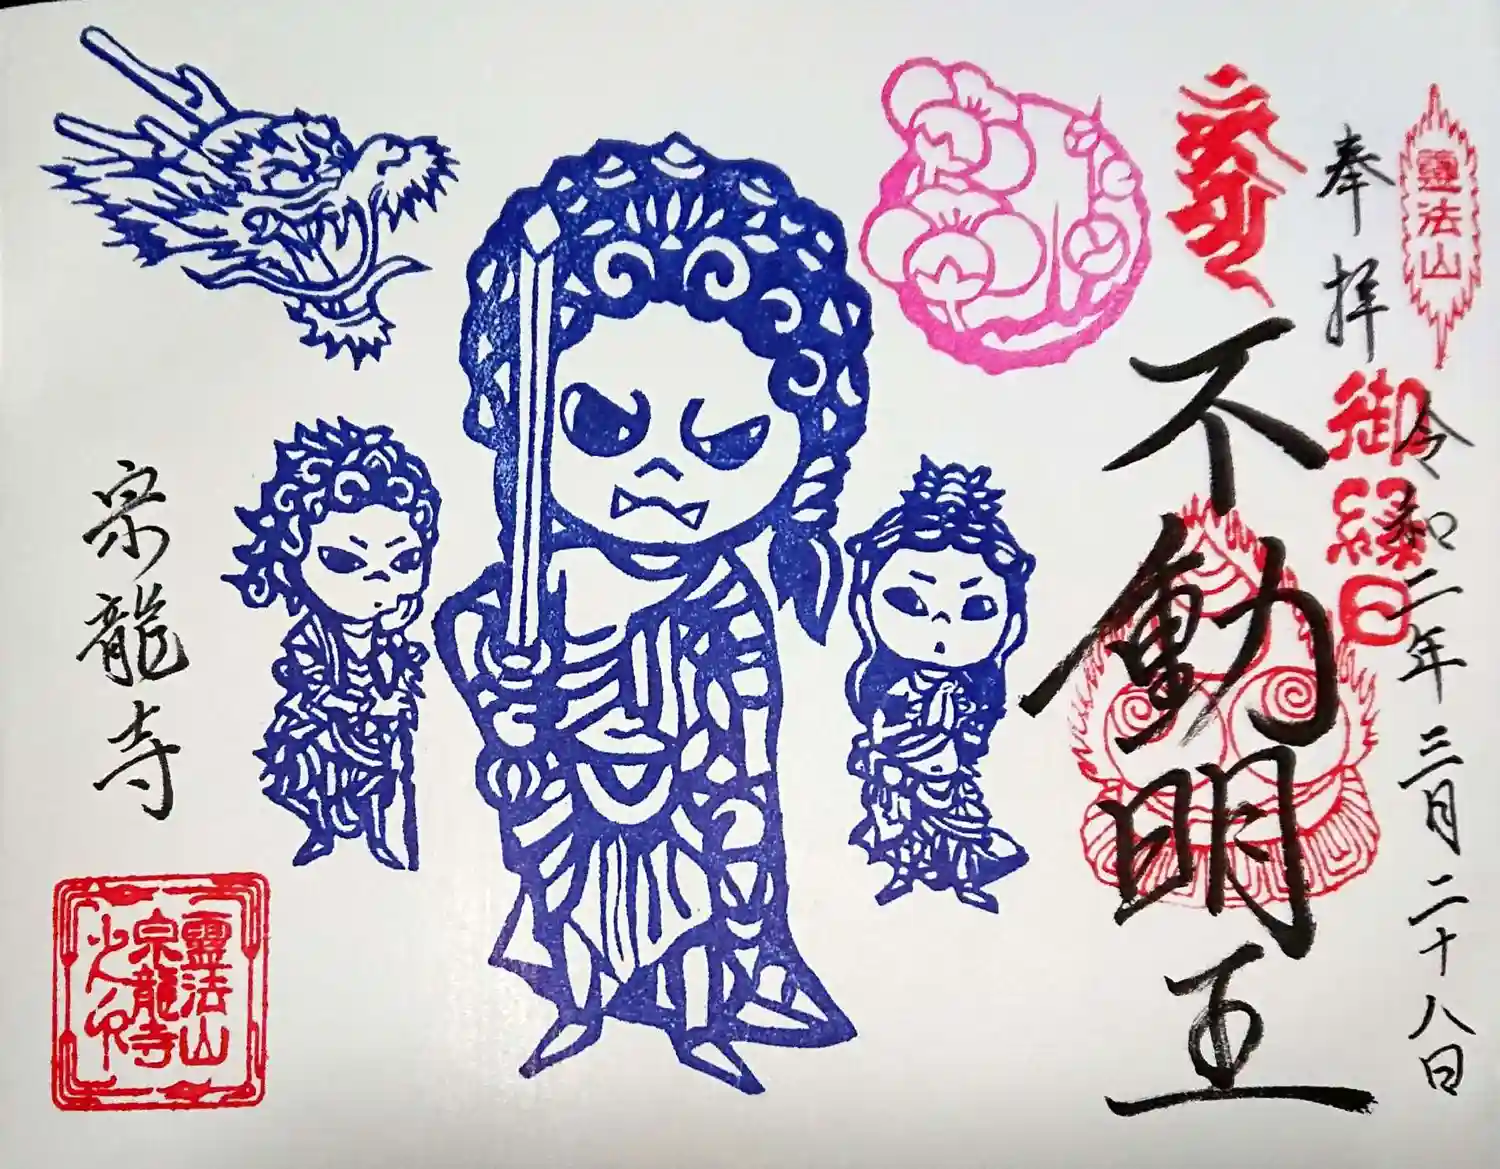 靈法山
奉拝
令和二年三月二十八日
御縁日
不動明王
宗龍寺
靈法山
宗龍寺